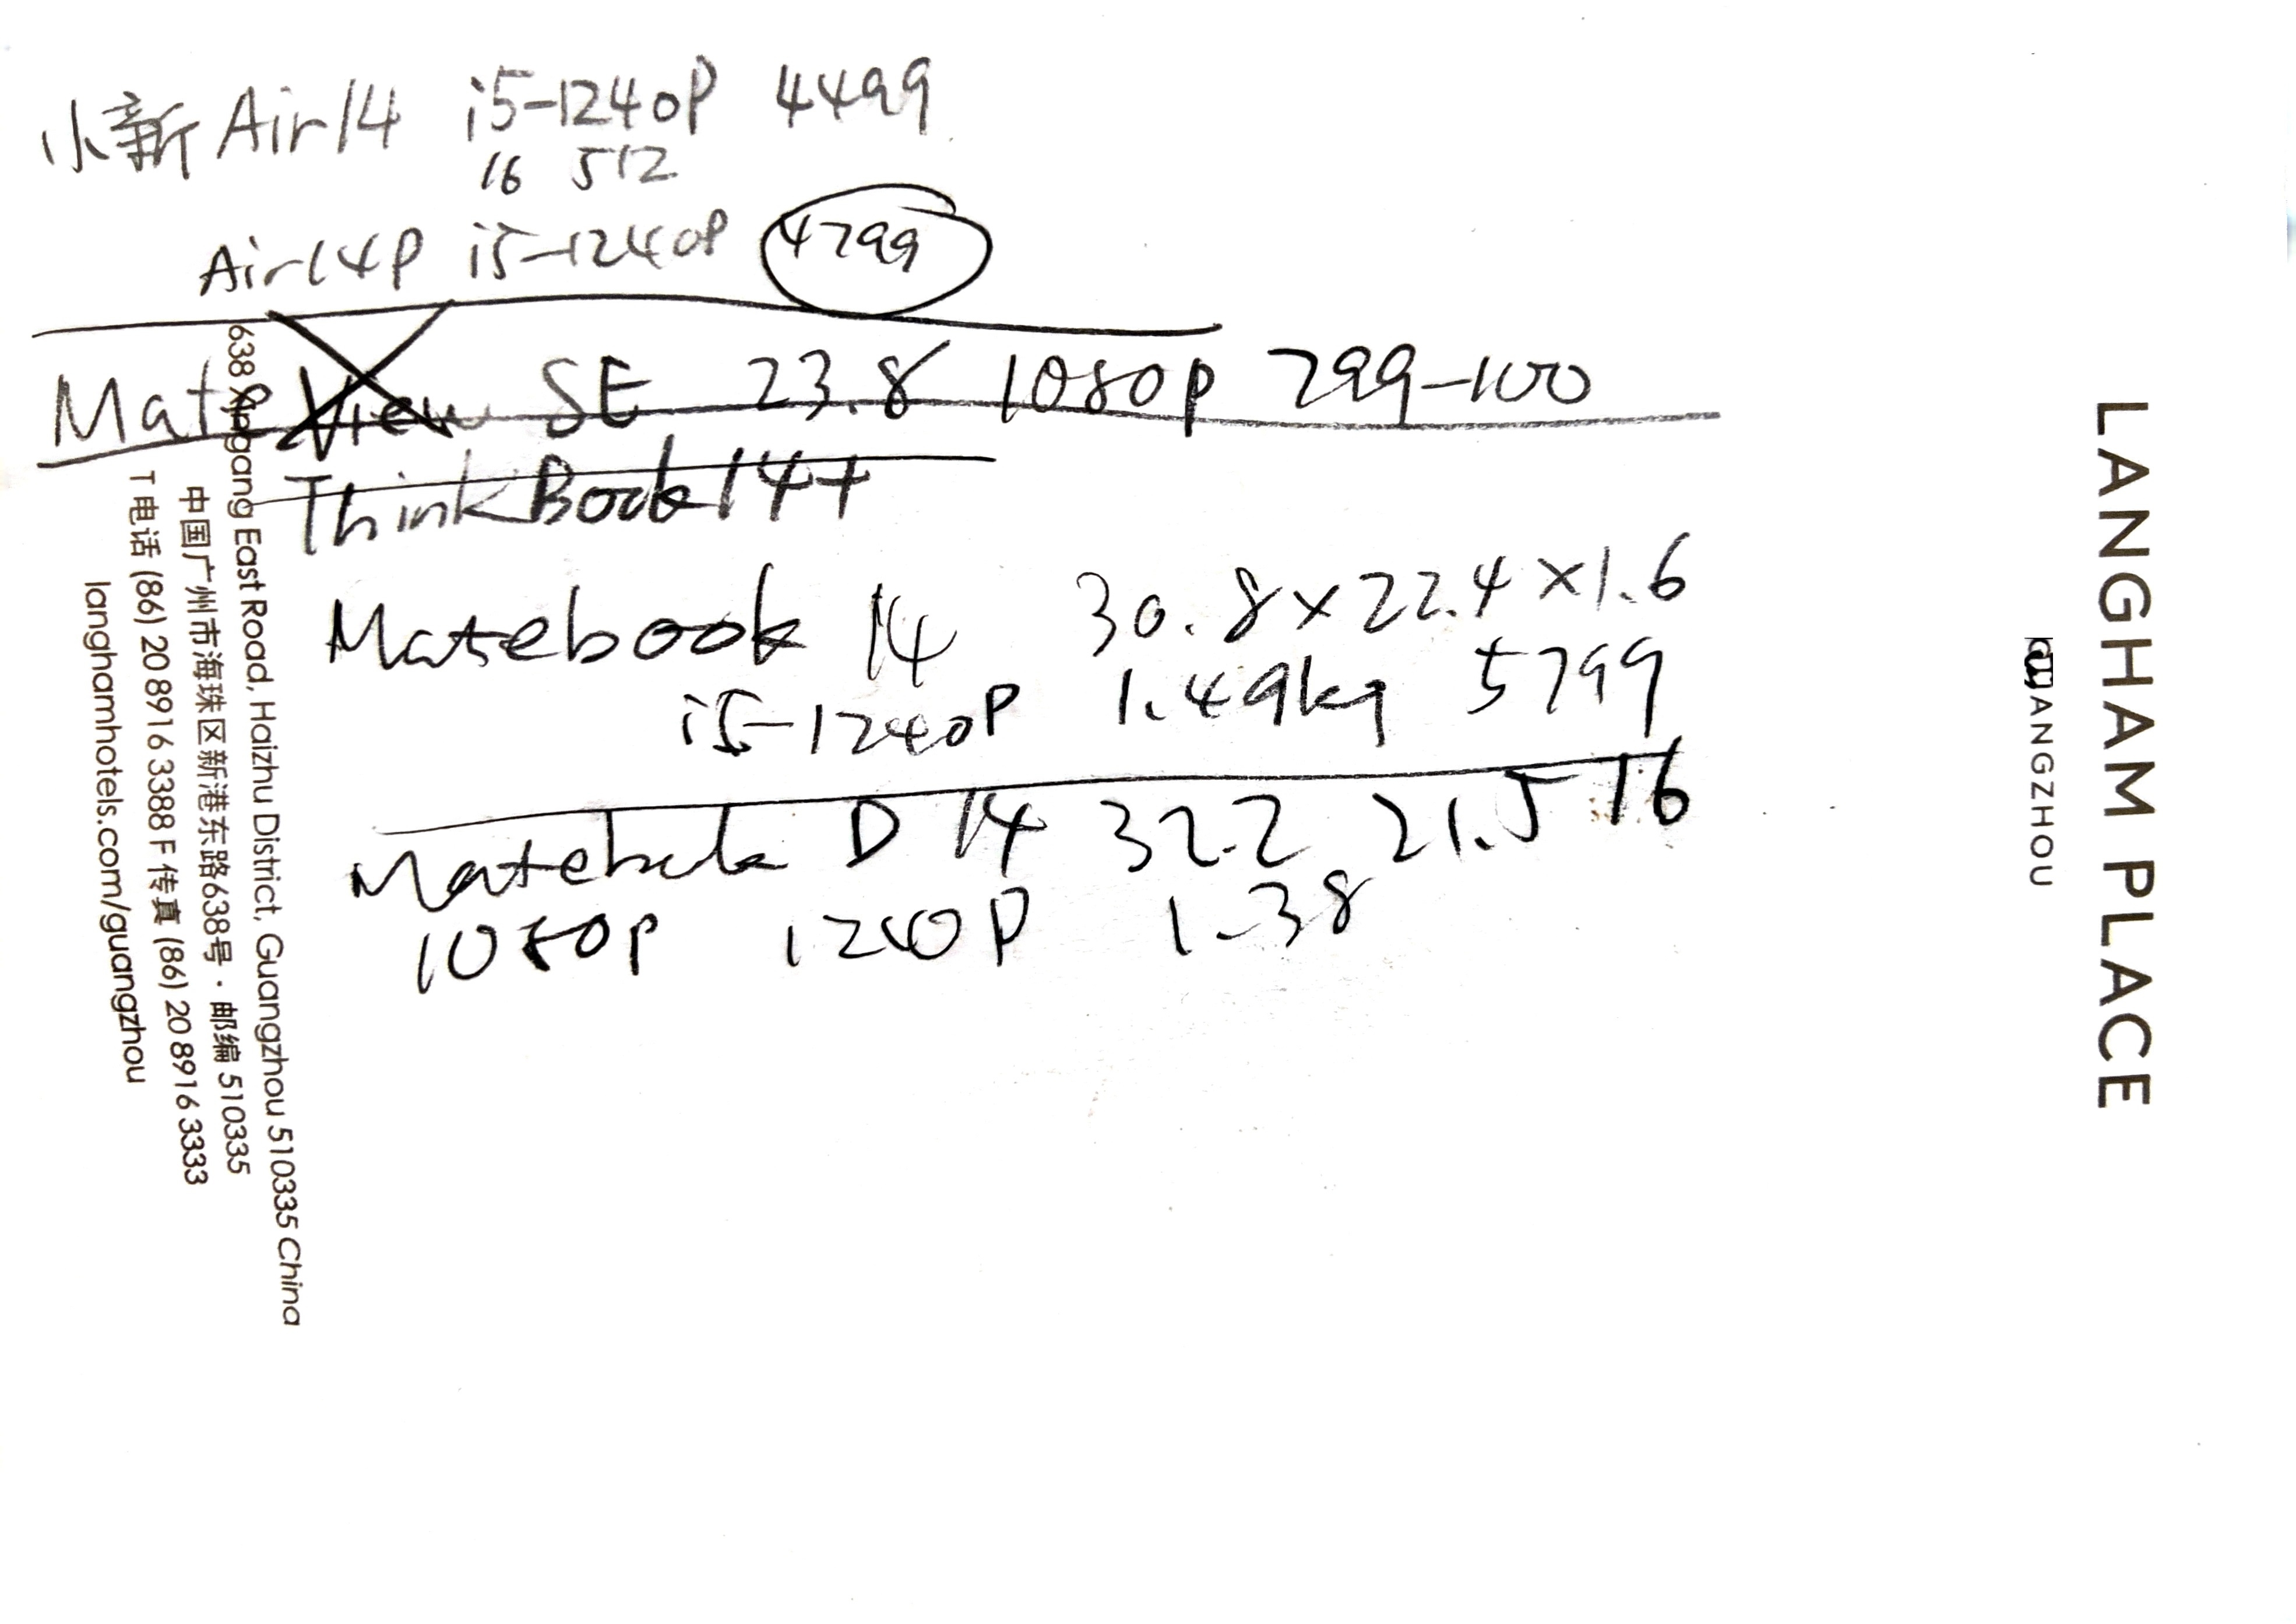 小新 Air14 i5-1240P 4499
16 512
Air14P i5-1240P 4799
Mate View SE 23.8 1080p 799-100
ThinkBook 14+
Matebook 14 30.8×22.4×1.6
i5-1240P 1.49kg 5799
Matebook D 14 32.2 21.5 16
1080p 1240P 1.38
638 Xingang East Road, Haizhu District, Guangzhou 510335 China
中国广州市海珠区新港东路638号·邮编 510335
T 电话 (86) 20 8916 3388 F 传真 (86) 20 8916 3333
langhamhotels.com/guangzhou
LANGHAM PLACE
GUANGZHOU